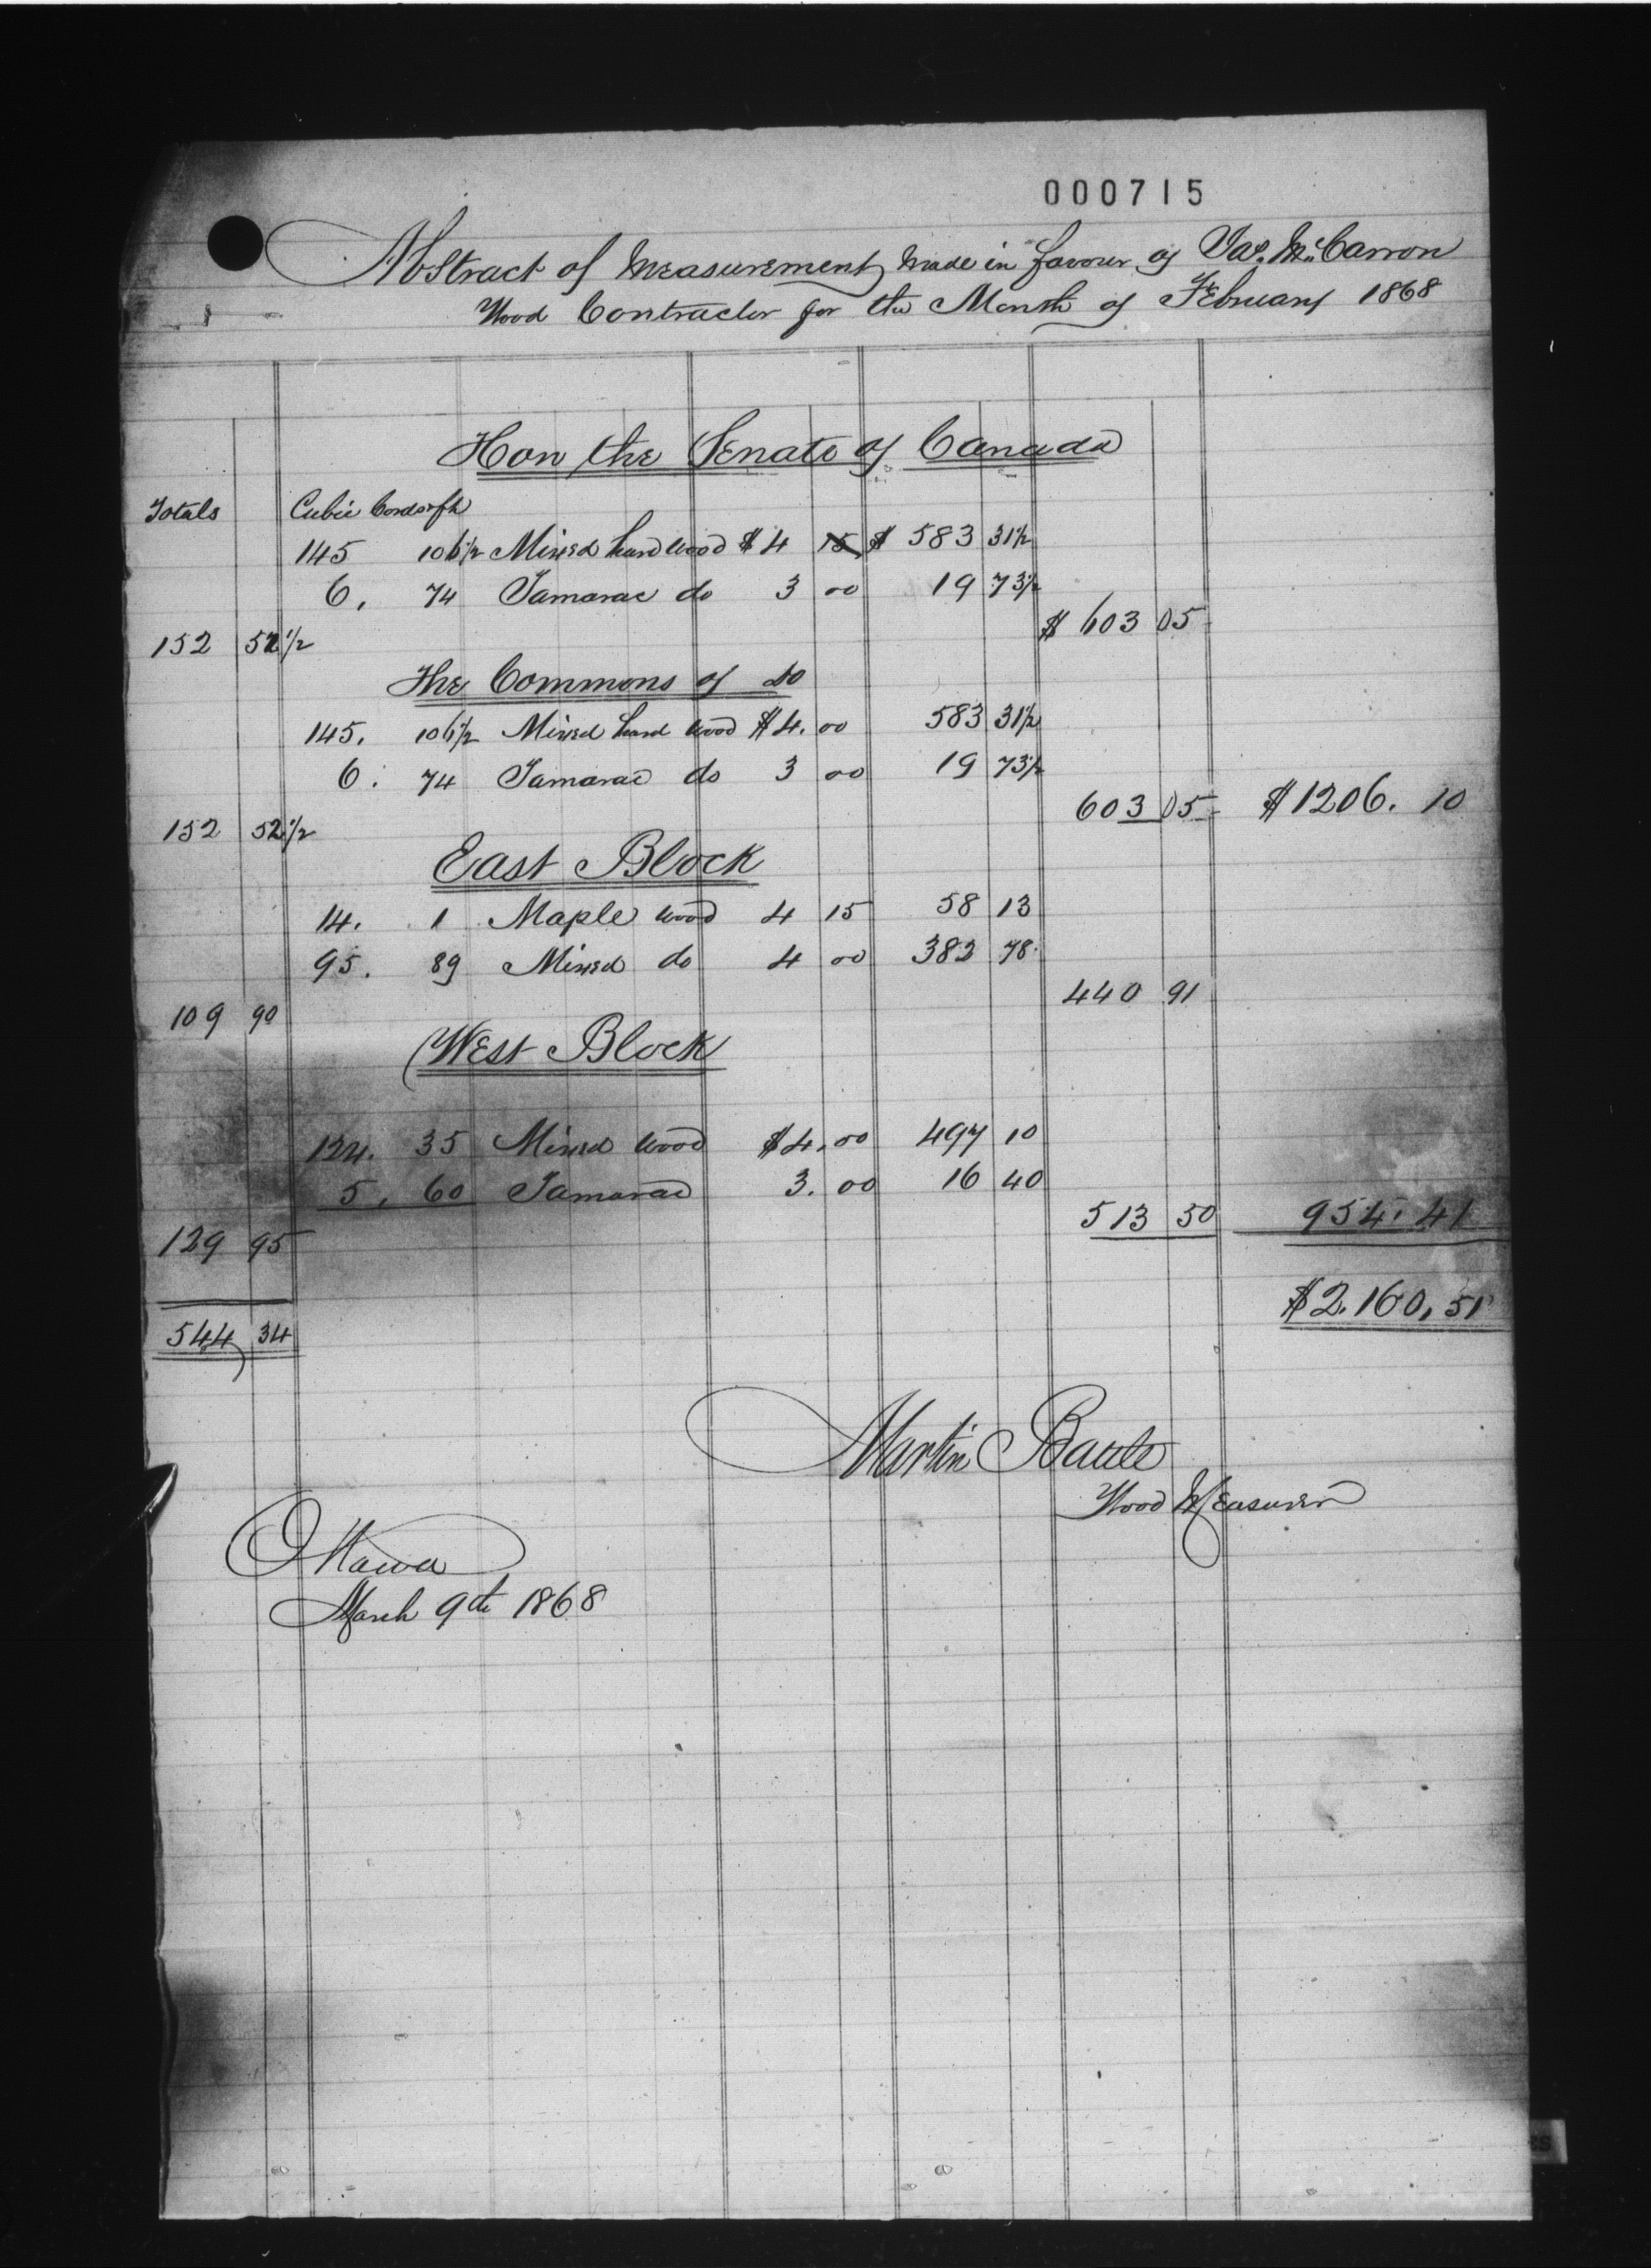 000715
Abstract of Measurement made in favour of Jas. McCarron
Wood Contractor for the Month of February 1868
Hon the Senate of Canada
Totals Cubic Cords & ft
145 106 1/2 Mixed hard wood $ 4 15 $ 583 31 1/2
6. 74 Tamarac do 3 00 19 73 1/2
$ 603 05
152 52 1/2
The Commons of do
145. 106 1/2 Mixed hard wood $ 4. 00 583 31 1/2
6. 74 Tamarac do 3 00 19 73 1/2
603 05 $1206. 10
152 52 1/2
East Block
14. 1 Maple wood 4 15 58 13
95. 89 Mixed do 4 00 382 78
440 91
109 90
West Block
124. 35 Mixed wood $4.00 497 10
5. 60 Tamarac 3.00 16 40
513 50 954. 41
129 95
$2.160,51
544 34
Martin Battle
Wood Measurer
Ottawa
March 9th 1868